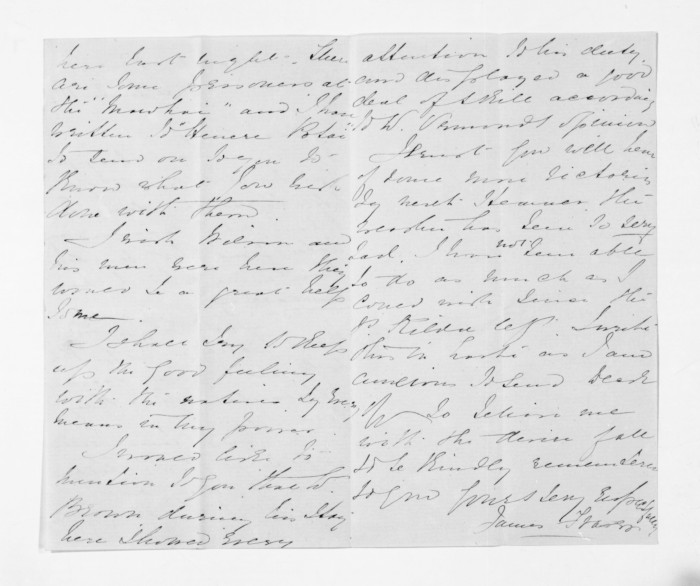 here last night. There
are some prisoners at
the "Mawhai" and I have
written to "Henere Potai"
to send on to you to
Know what you wish
done with them.
I wish Wilson and
his men were here they
would be a great help
to me.
I shall try to Keep
up the good feeling
with the natives by every
means in my power.
I would like to
mention to you that Dr
Brown during his stay
here showed every
attention to his duty
and displayed a good
deal of skill according
to W. opinion
I trust you will hear
of some more victories
by next Steamer the
weather has been so very
bad. I have not been able
to do as much as I
could wish since the
St. Kilda left. I write
this in haste as I am
anxious to send
off so
with the desire
to be Kindly remembered
to you yours very respectfully
James Fraser